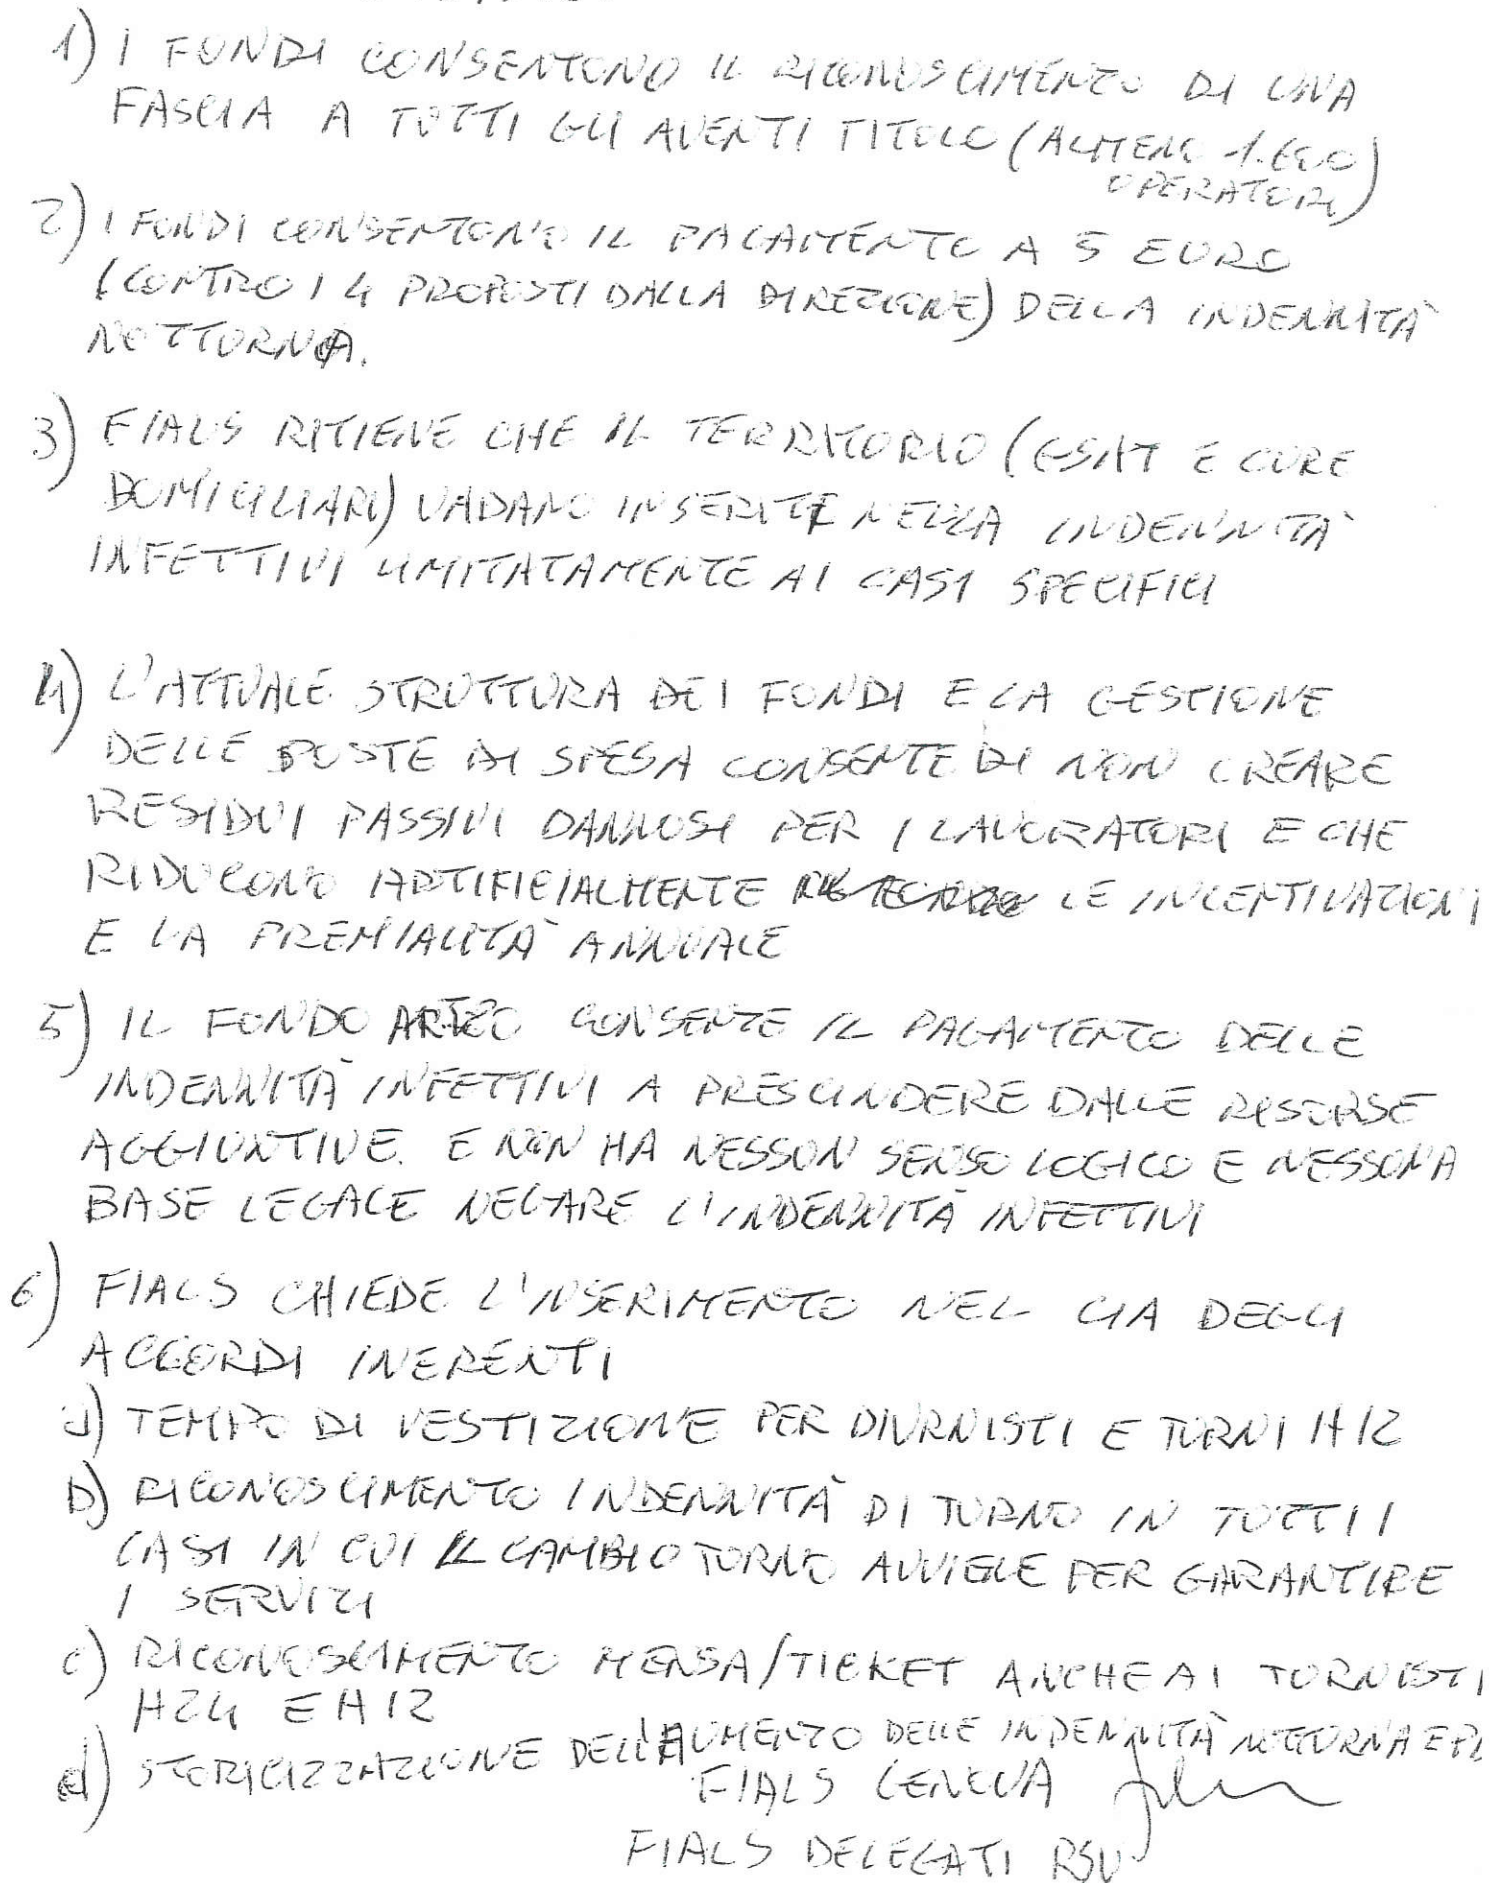 1) I FONDI CONSENTONO IL RICONOSCIMENTO DI UNA
FASCIA A TUTTI GLI AVENTI TITOLO (ALMENO
OPERATORI)
2) I FONDI CONSENTONO IL PAGAMENTO A 5 EURO
(CONTRO I 4 PROPOSTI DALLA DIREZIONE) DELLA INDENNITÀ
NOTTURNA.
3) FIALS RITIENE CHE IL TERRITORIO (GSAT E CURE
DOMICILIARI) VADANO INSERITE NELLA INDENNITÀ
INFETTIVI LIMITATAMENTE AI CASI SPECIFICI
4) L'ATTUALE STRUTTURA DEI FONDI E LA GESTIONE
DELLE POSTE DI SPESA CONSENTE DI NON CREARE
RESIDUI PASSIVI DANNOSI PER I LAVORATORI E CHE
RIDUCONO ARTIFICIALMENTE LE INCENTIVAZIONI
E LA PREMIALITÀ ANNUALE
5) IL FONDO CONSENTE IL PAGAMENTO DELLE
INDENNITÀ INFETTIVI A PRESCINDERE DALLE RISORSE
AGGIUNTIVE. E NON HA NESSUN SENSO LOGICO E NESSUNA
BASE LEGALE NEGARE L'INDENNITÀ INFETTIVI
6) FIALS CHIEDE L'INSERIMENTO NEL CIA DEGLI
ACCORDI INERENTI
a) TEMPO DI VESTIZIONE PER DIURNISTI E TURNI H12
b) RICONOSCIMENTO INDENNITÀ DI TURNO IN TUTTI I
CASI IN CUI IL CAMBIO TURNO AVVIENE PER GARANTIRE
I SERVIZI
c) RICONOSCIMENTO MENSA/TICKET ANCHE AI TURNISTI
H24 E H12
d) STORICIZZAZIONE DELL'AUMENTO DELLE INDENNITÀ NOTTURNA E
FIALS GENOVA
FIALS DELEGATI RSU